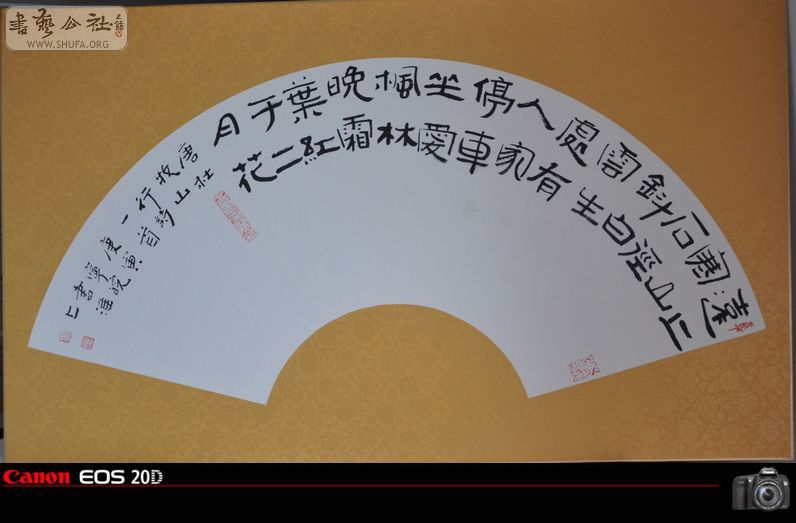 書藝公社
WWW.SHUFA.ORG
遠上
寒山
石徑
斜白
雲生
處有
人家
停車
坐愛
楓林
晚霜
葉紅
于二
月花
唐杜
牧山
行詩
一首
庚寅
寧皖
書淮
上
Canon EOS 20D